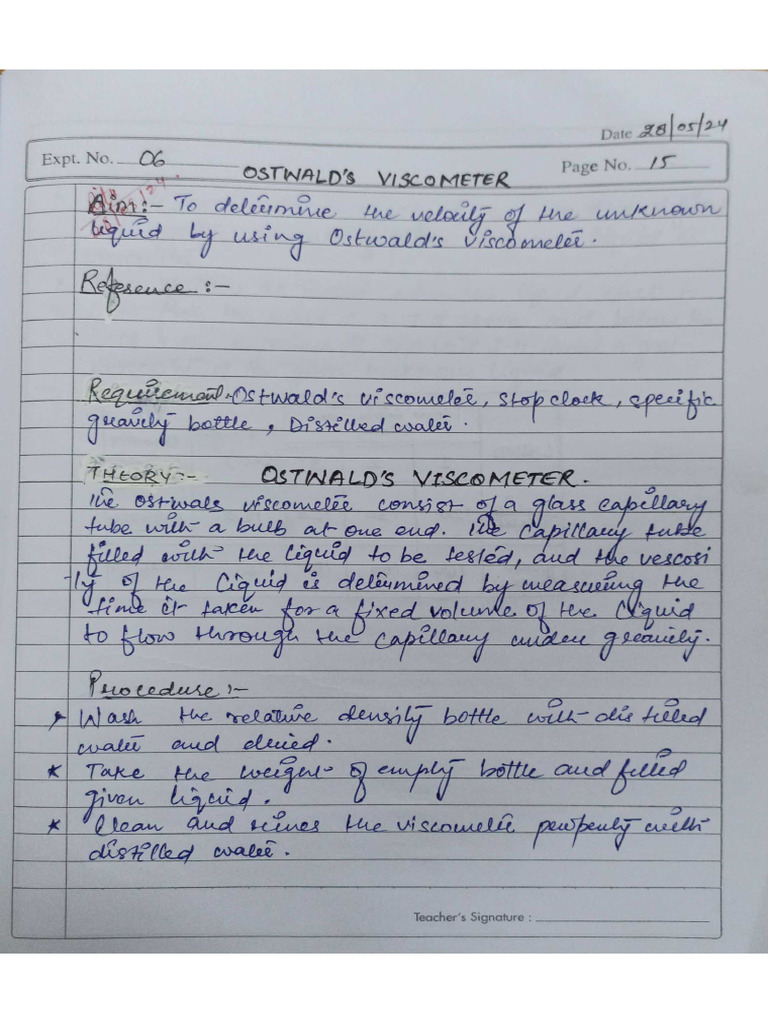 Date 28/05/24
Expt. No. 06
Page No. 15
OSTWALD'S VISCOMETER
Aim:- To determine the velocity of the unknown
liquid by using Ostwald's viscometer.
Reference :-
Requirement:- Ostwald's viscometer, stop clock, specific
gravity bottle, Distilled water.
THEORY:- OSTWALD'S VISCOMETER.
The ostwals viscometer consist of a glass capillary
tube with a bulb at one end. The capillary tube
filled with the liquid to be tested, and the vescosi
-ty of the liquid is determined by measuring the
time it taken for a fixed volume of the liquid
to flow through the capillary under gravity.
Procedure :-
* Wash the relative density bottle with distilled
water and dried.
* Take the weight of empty bottle and filled
given liquid.
* Clean and rines the viscometer perpenly with
distilled water.
Teacher's Signature :